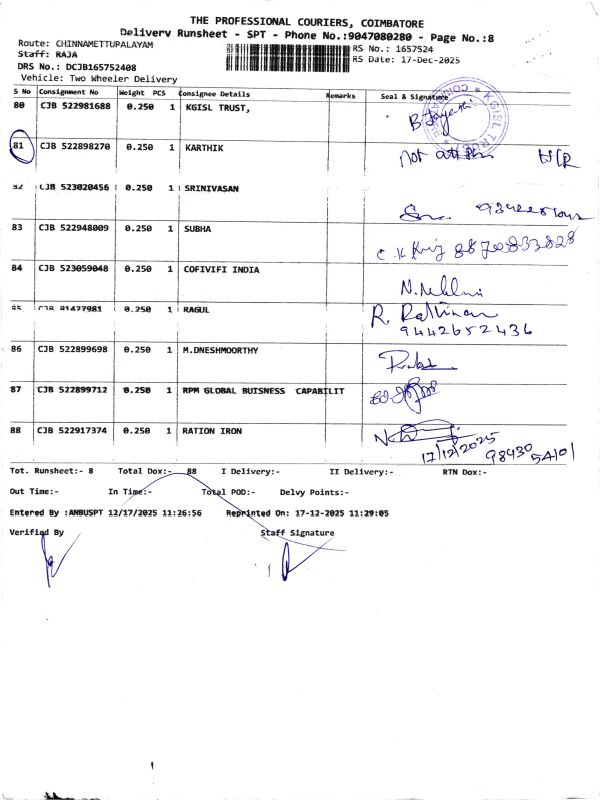 THE PROFESSIONAL COURIERS, COIMBATORE
Delivery Runsheet - SPT - Phone No.:9047080280 - Page No.:8
Route: CHINNAMETTUPALAYAM
Staff: RAJA
DRS No.: DCJB165752408
Vehicle: Two Wheeler Delivery
RS No.: 1657524
RS Date: 17-Dec-2025
S No Consignment No Weight PCS Consignee Details Remarks Seal & Signature
80 CJB 522981688 0.250 1 KGISL TRUST,
KGISL TRUST
81 CJB 522898270 0.250 1 KARTHIK Not
82 CJB 523020456 0.250 1 SRINIVASAN
83 CJB 522948009 0.250 1 SUBHA
84 CJB 523059048 0.250 1 COFIVIFI INDIA
85 CJB 81427981 0.250 1 RAGUL R.
9442652436
86 CJB 522899698 0.250 1 M.DNESHMOORTHY
87 CJB 522899712 0.250 1 RPM GLOBAL BUISNESS CAPABILIT
88 CJB 522917374 0.250 1 RATION IRON
17/12/2025
98430 54101
Tot. Runsheet:- 8 Total Dox:- 88 I Delivery:- II Delivery:- RTN Dox:-
Out Time:- In Time:- Total POD:- Delvy Points:-
Entered By :ANBUSPT 12/17/2025 11:26:56 Reprinted On: 17-12-2025 11:29:05
Verified By Staff Signature